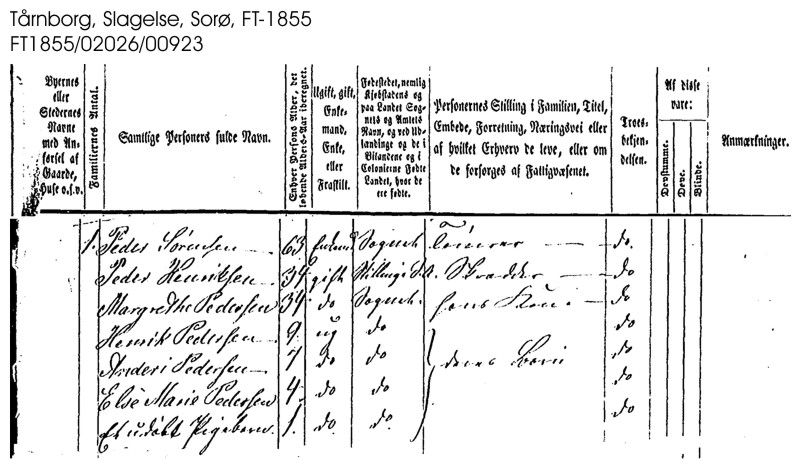 Tårnborg, Slagelse, Sorø, FT-1855
FT1855/02026/00923
Byernes eller Stedernes Navne med Anførsel af Gaarde, Huse o.s.v.
Familiernes Antal.
Samtlige Personers fulde Navn.
Enhver Persons Alder, det løbende Alders-Aar iberegnet.
Ugift, gift, Enkemand, Enke, eller Fraskilt.
Fødestedet, nemlig Kjøbstadens og paa Landet Sognets og Amtets Navn, og ved Udlændinge og de i Bilandene og i Colonierne Fødte Landet, hvor de ere fødte.
Personernes Stilling i Familien, Titel, Embede, Forretning, Næringsvei eller af hvilket Erhverv de leve, eller om de forsørges af Fattigvæsenet.
Troesbekjendelsen.
Af disse vare:
Døvstumme.
Døve.
Blinde.
Anmærkninger.
1. Peder Sørensen 63 Enkemd Sognet Tømrer do.
Peder Henriksen 34 gift Stillinge S. A. Skrædder do
Margrethe Pedersen 34 do Sognet. hans Kone do
Henrik Pedersen 9 ug do do
Pedersen 7 do do deres Børn do
Else Marie Pedersen 4 do do do
Et udøbt Pigebarn. 1. do. do. do